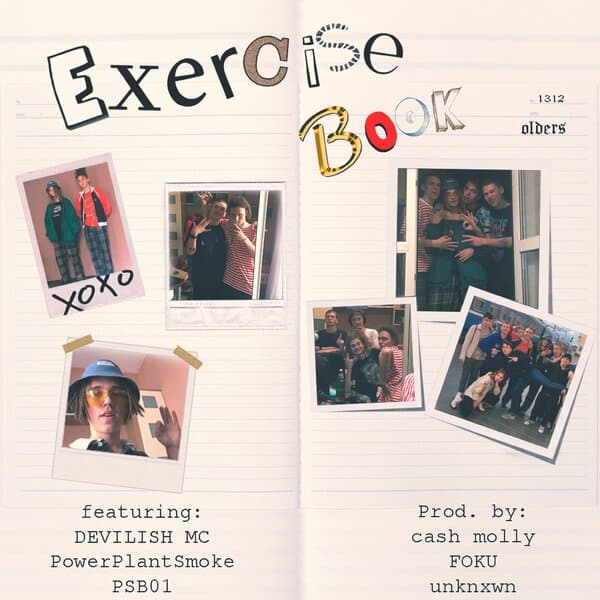 Exercise
Book
1312
olders
XOXO
featuring:
DEVILISH MC
PowerPlantSmoke
PSB01
Prod. by:
cash molly
FOKU
unknxwn